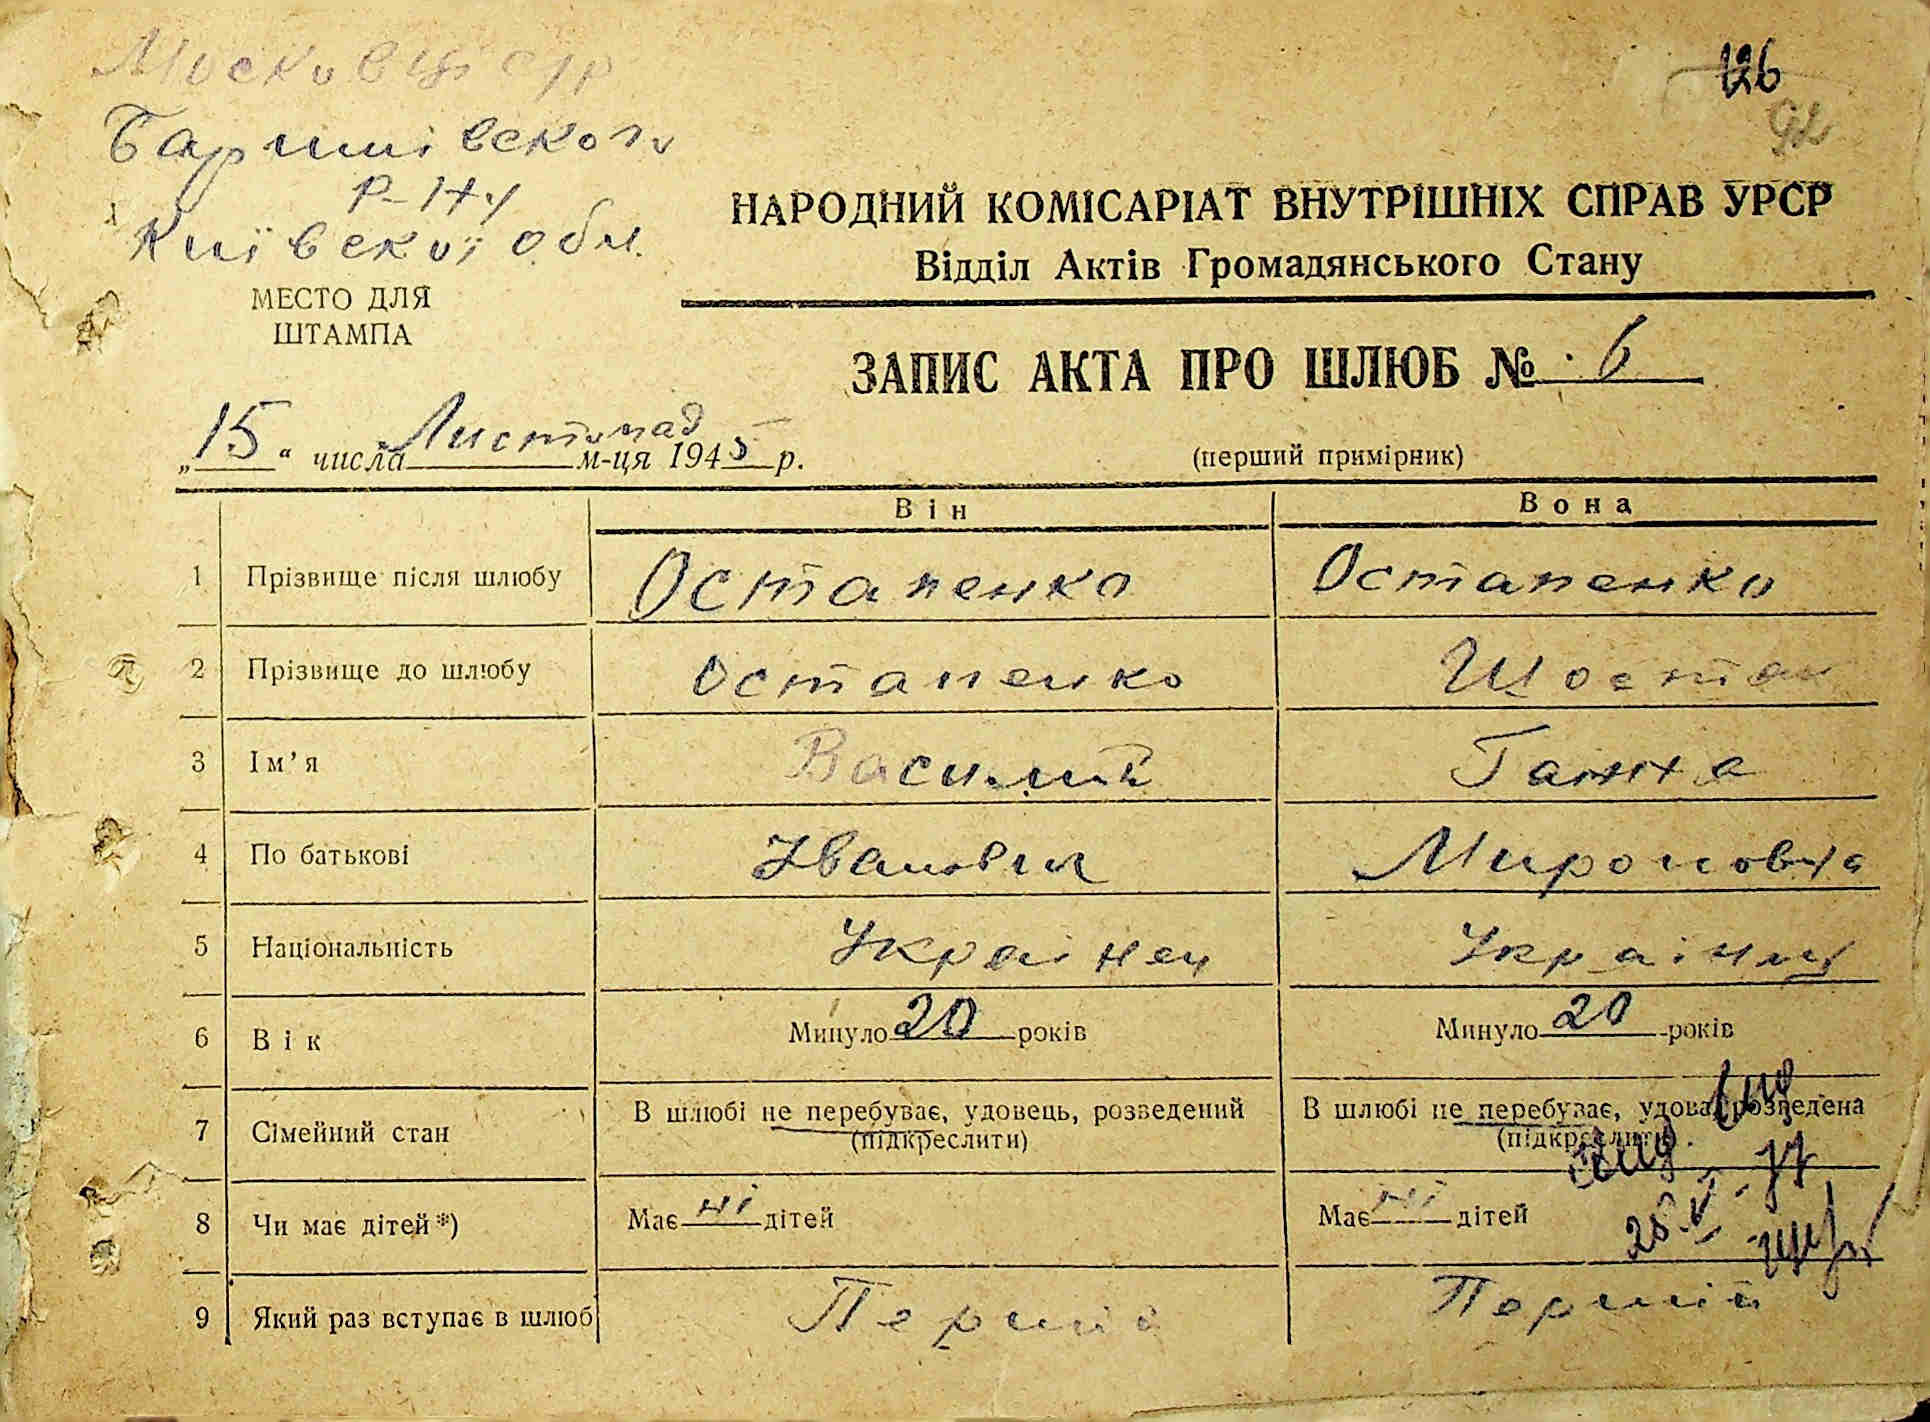 126
92
Баришівсконо
р-ну
Київскої обл.
МЕСТО ДЛЯ
ШТАМПА
НАРОДНИЙ КОМІСАРІАТ ВНУТРІШНІХ СПРАВ УРСР
Відділ Актів Громадянського Стану
ЗАПИС АКТА ПРО ШЛЮБ № 6
„15“ числа Листопад м-ця 1945 р.
(перший примірник)
Він Вона
1 Прізвище після шлюбу Остапенко Остапенко
2 Прізвище до шлюбу Остапенко Шостак
3 Ім’я Василий Ганна
4 По батькові Іванович Мироновна
5 Національність Українец Українц
6 Вік Минуло 20 років Минуло 20 років
7 Сімейний стан В шлюбі не перебуває, удовець, розведений В шлюбі не перебуває, удова, розведена
(підкреслити) (підкреслити)
8 Чи має дітей*) Має ні дітей Має ні дітей
9 Який раз вступає в шлюб Перший Перший